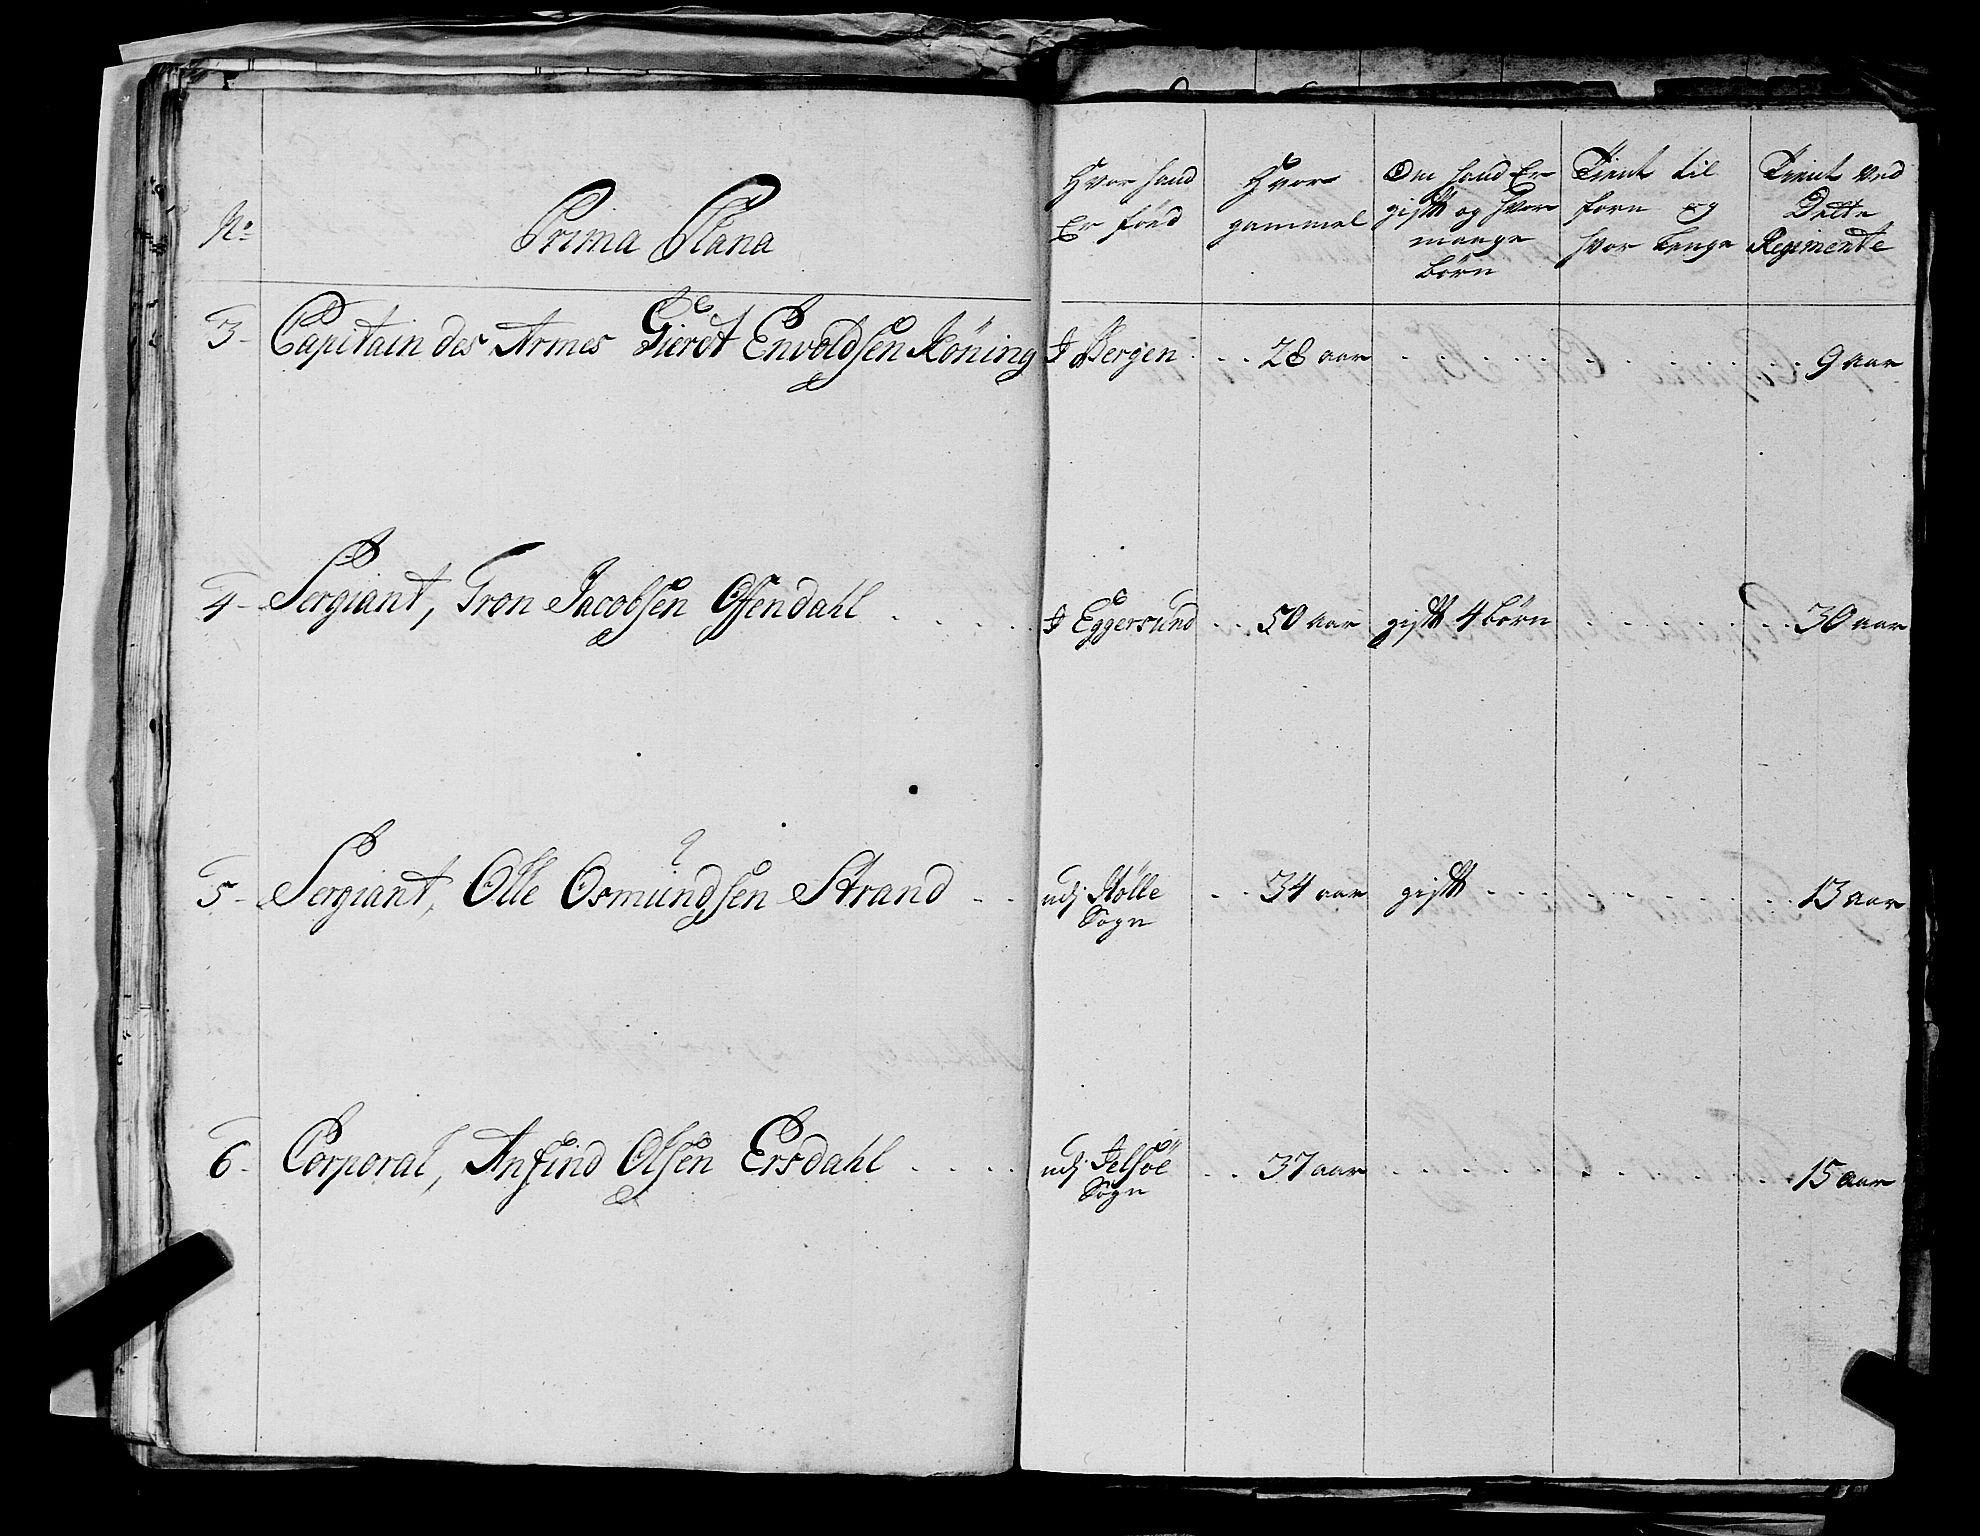 No
Prima Plana
Hvor hand Er föed
Hvor gammel
Om hand Er gift og hvor mange börn
Tient til forn og hvor lenge
Tient ved Dette Regimente
3 Capitain des Armes Gierdt Envoldsen Köning I Bergen 28 aar 9 aar
4 Sergiant, Tron Jacobsen Offendahl I Eggersund 50 aar gift 4 börn 30 aar
5 Sergiant, Olle Osmundsen Strand udj Sogn 34 aar gift 13 aar
6 Corporal, Anfind Olsen Ersdahl udj Jelsöe Sogn 37 aar 15 aar